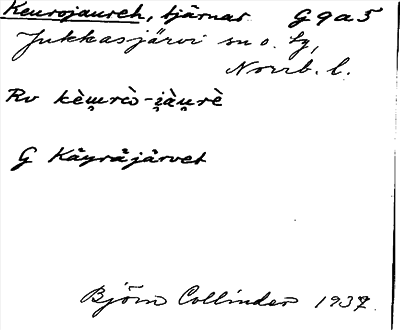 Keurojaureh, tjärnar G 9 a 5
Jukkasjärvi sn o. tg,
Norrb. l.
Rv kèu̯rò-i̯àu̯rè
G Kåyråjärvet
Björn Collinder 1937.